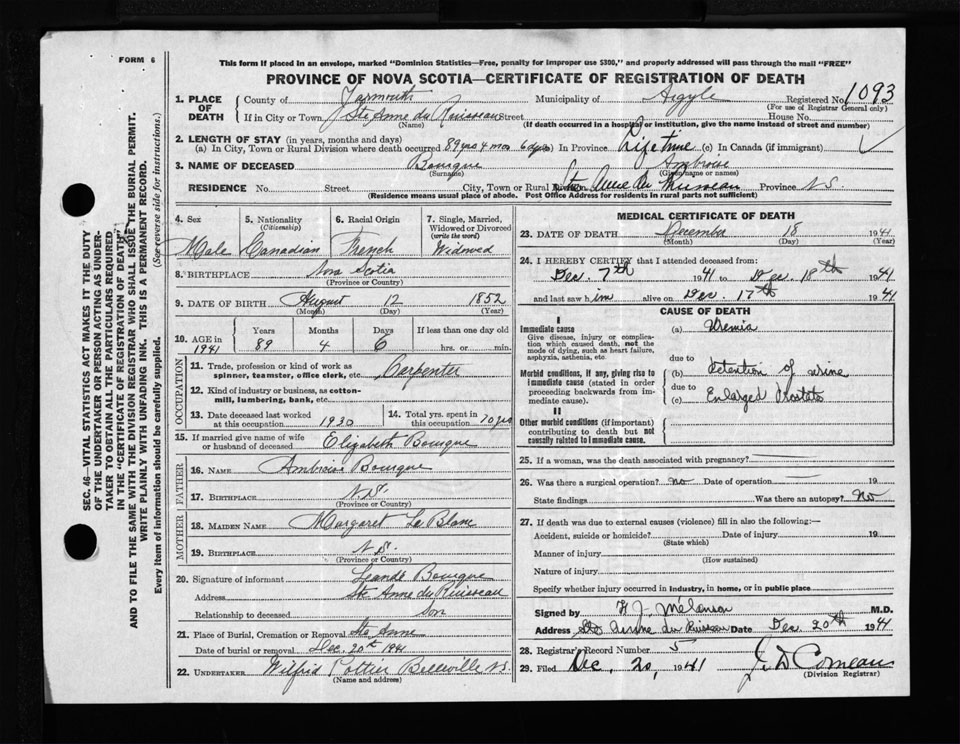 FORM 6
This form if placed in an envelope, marked "Dominion Statistics—Free, penalty for improper use $300," and properly addressed will pass through the mail "FREE"
PROVINCE OF NOVA SCOTIA—CERTIFICATE OF REGISTRATION OF DEATH
1. PLACE OF DEATH County of Yarmouth Municipality of Argyle Registered No. 1093
(For use of Registrar General only)
If in City or Town Ste Anne du Ruisseau Street House No.
(Name) (If death occurred in a hospital or institution, give the name instead of street and number)
2. LENGTH OF STAY (in years, months and days)
(a) In City, Town or Rural Division where death occurred 89 yrs 4 mos 6 dys (b) In Province Lifetime (c) In Canada (if immigrant)
3. NAME OF DECEASED Bourque Ambroise
(Surname) (Given name or names)
RESIDENCE No. Street City, Town or Rural Division Ste Anne du Ruisseau Province N S
(Residence means usual place of abode. Post Office Address for residents in rural parts not sufficient)
SEC. 46—VITAL STATISTICS ACT MAKES IT THE DUTY
OF THE UNDERTAKER OR PERSON ACTING AS UNDER-
TAKER TO OBTAIN ALL THE PARTICULARS REQUIRED
IN THE "CERTIFICATE OF REGISTRATION OF DEATH"
AND TO FILE THE SAME WITH THE DIVISION REGISTRAR WHO SHALL ISSUE THE BURIAL PERMIT.
WRITE PLAINLY WITH UNFADING INK. THIS IS A PERMANENT RECORD.
Every item of information should be carefully supplied. (See reverse side for instructions.)
4. Sex Male
5. Nationality (Citizenship) Canadian
6. Racial Origin French
7. Single, Married, Widowed or Divorced (write the word) Widowed
8. BIRTHPLACE Nova Scotia
(Province or Country)
9. DATE OF BIRTH August 12 1852
(Month) (Day) (Year)
10. AGE in 1941 Years 89 Months 4 Days 6 If less than one day old hrs. or min.
OCCUPATION
11. Trade, profession or kind of work as spinner, teamster, office clerk, etc. Carpenter
12. Kind of industry or business, as cotton-mill, lumbering, bank, etc.
13. Date deceased last worked at this occupation 1930
14. Total yrs. spent in this occupation 70 yrs
15. If married give name of wife or husband of deceased Elizabeth Bourque
FATHER
16. NAME Ambroise Bourque
17. BIRTHPLACE N.S.
(Province or Country)
MOTHER
18. MAIDEN NAME Margaret Le Blanc
19. BIRTHPLACE N.S.
(Province or Country)
20. Signature of informant Leandé Bourque
Address Ste Anne du Ruisseau
Relationship to deceased Son
21. Place of Burial, Cremation or Removal Ste Anne
Date of burial or removal Dec. 20th 1941
22. UNDERTAKER Wilfrid Pottier Belleville N.S.
(Name and address)
MEDICAL CERTIFICATE OF DEATH
23. DATE OF DEATH December 18 1941
(Month) (Day) (Year)
24. I HEREBY CERTIFY that I attended deceased from:
Dec. 7th 1941 to Dec. 18th 1941
and last saw him alive on Dec. 17th 1941
CAUSE OF DEATH
I
Immediate cause
Give disease, injury or complication which caused death, not the mode of dying, such as heart failure, asphyxia, asthenia, etc.
(a) Uremia
due to
Morbid conditions, if any, giving rise to immediate cause (stated in order proceeding backwards from immediate cause).
(b) Retention of urine
due to
(c) Enlarged Prostate
II
Other morbid conditions (if important) contributing to death but not causally related to immediate cause.
25. If a woman, was the death associated with pregnancy? 19
26. Was there a surgical operation? no Date of operation 19
State findings Was there an autopsy? No
27. If death was due to external causes (violence) fill in also the following:—
Accident, suicide or homicide? Date of injury 19
(State which)
Manner of injury
(How sustained)
Nature of injury
Specify whether injury occurred in industry, in home, or in public place
Signed by H J. Melanson M.D.
Address Ste Anne du Ruisseau Date Dec. 20th 1941
28. Registrar's Record Number 5
29. Filed Dec, 20, 1941 J. D Comeau
(Division Registrar)